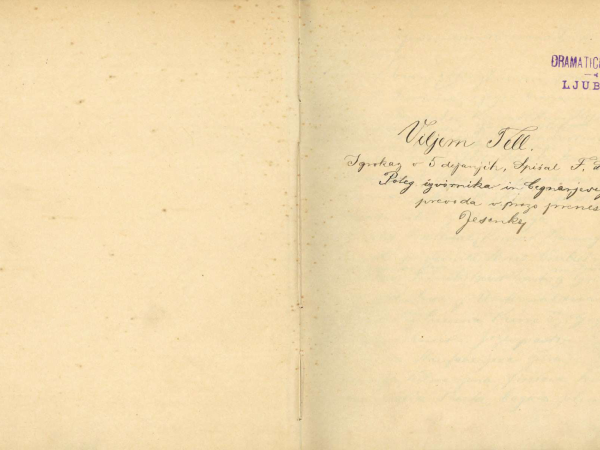 DRAMATIC
LJUB
Viljem Tell.
Igrokaz v 5 dejanjih, Spisal F.
Poleg izvirnika in Cegnarjeveg
prevoda v prozo prenes
Jesenky